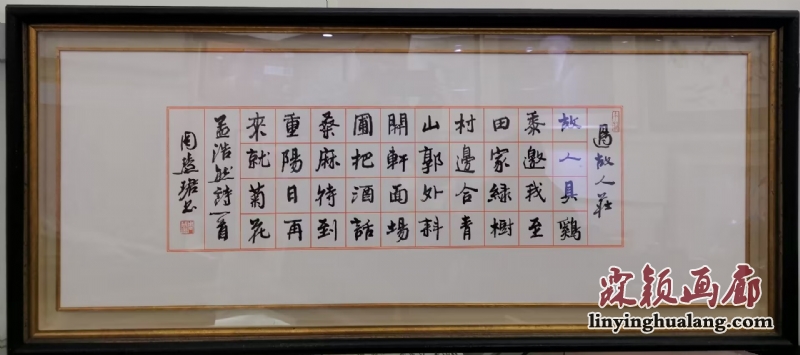 過故人莊
故人具鷄
黍邀我至
田家綠樹
村邊合青
山郭外斜
開軒面場
圃把酒話
桑麻待到
重陽日再
來就菊花
孟浩然詩一首
霖颖画廊
linyinghualang.com